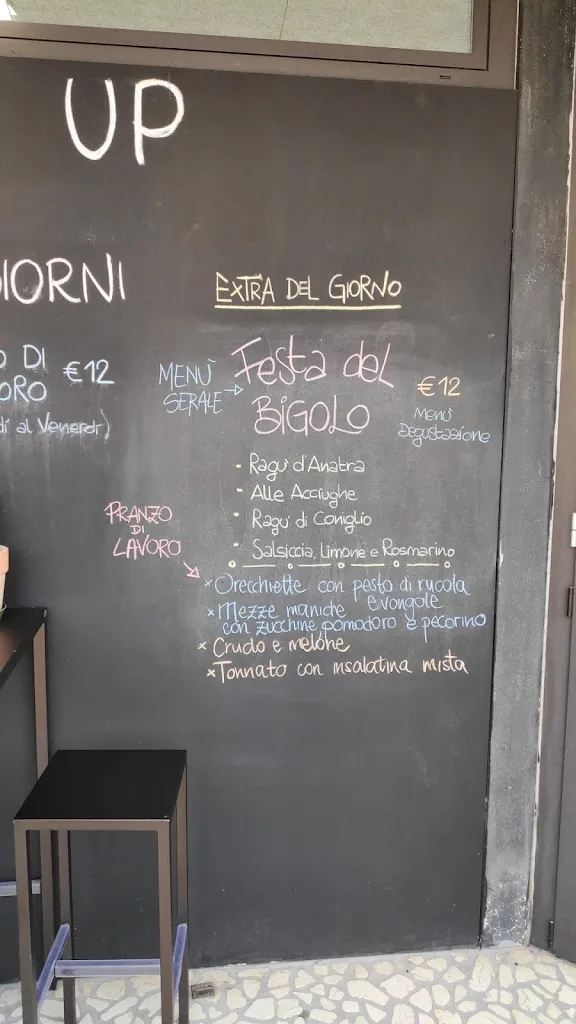 UP
IORNI
O DI
ORO
€12
dì al Venerdì)
EXTRA DEL GIORNO
MENÙ
SERALE
FESTA DEL
BIGOLO
€12
MENÙ
DEGUSTAZIONE
- Ragu' d'Anatra
- Alle Acciughe
- Ragu' di Coniglio
- Salsiccia, Limone e Rosmarino
PRANZO
DI
LAVORO
× Orecchiette con pesto di rucola
e vongole
× Mezze maniche
con zucchine pomodoro e pecorino
× Crudo e melone
× Tonnato con insalatina mista